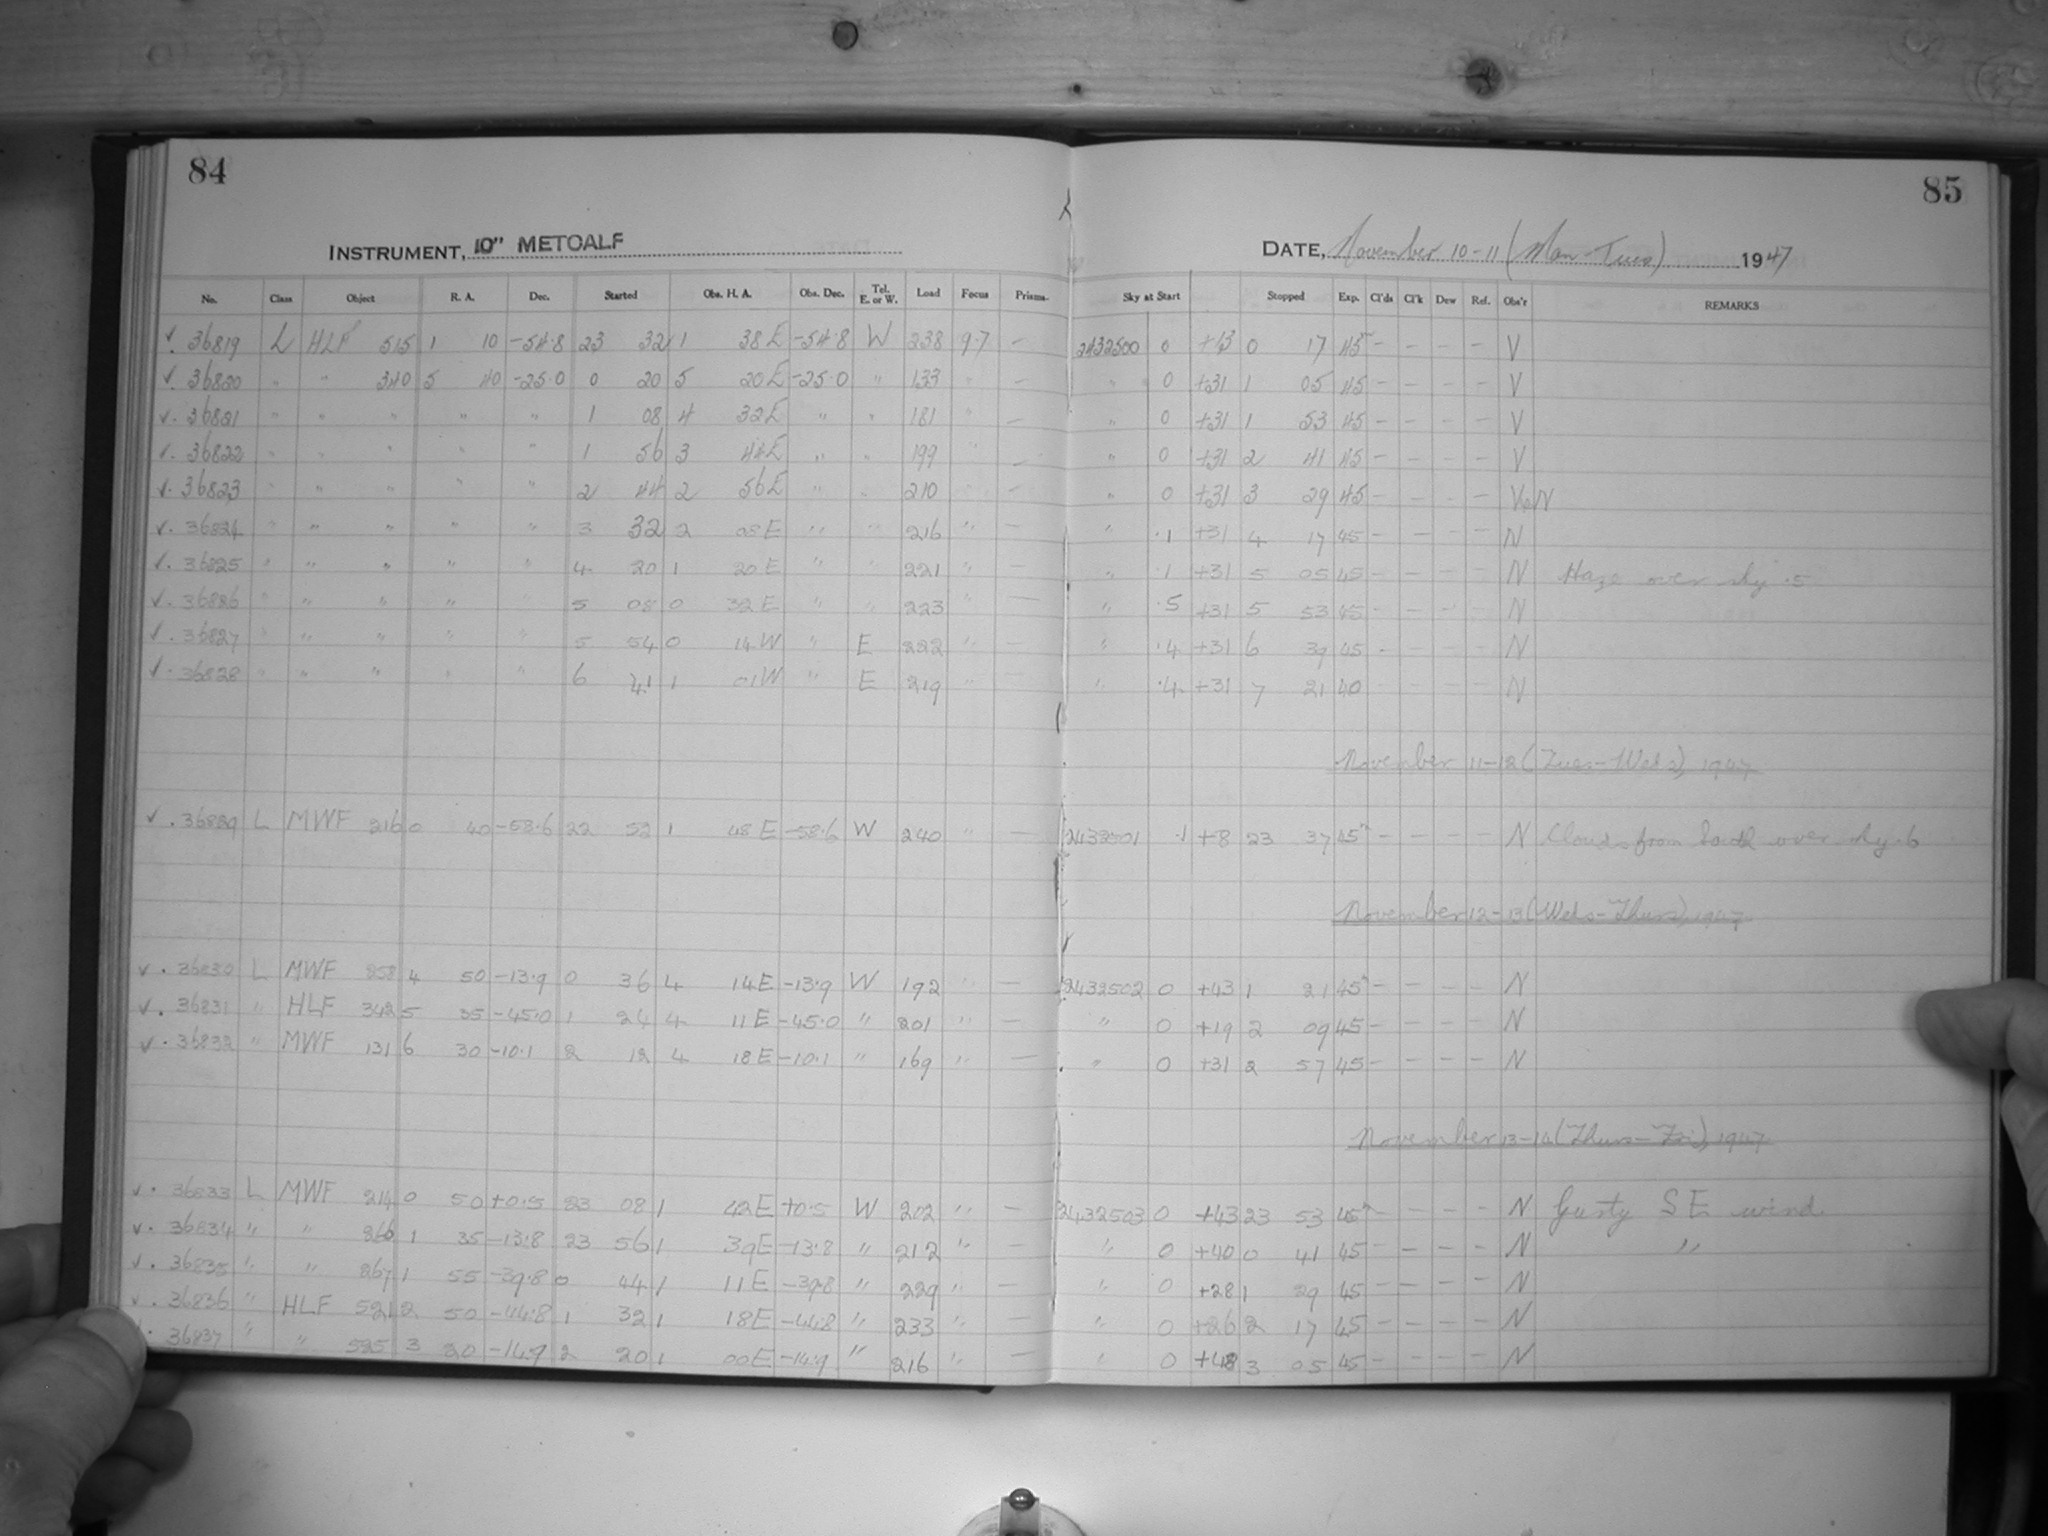 84
85
INSTRUMENT, 10" METCALF
DATE, November 10-11 (Mon-Tues) 1947
No. Class Object R. A. Dec. Started Obs. H. A. Obs. Dec. Tel. E. or W. Load Focus Prisms. Sky at Start Stopped Exp. Cl'ds Cl'k Dew Ref. Obs'r REMARKS
✓. 36819 L HLF 515 1 10 -54.8 23 32 1 38E -54.8 W 238 9.7 — 2432500 0 +13 0 17 45m - - - - V
✓. 36820 " " 340 5 40 -25.0 0 20 5 20E -25.0 " 133 " — " 0 +31 1 05 45 - - - - V
✓. 36821 " " " " " 1 08 4 32E " " 181 " — " 0 +31 1 53 45 - - - - V
✓. 36822 " " " " " 1 56 3 44E " " 199 " — " 0 +31 2 41 45 - - - - V
✓. 36823 " " " " " 2 44 2 56E " " 210 " — " 0 +31 3 29 45 - - - - V&N
✓. 36824 " " " " " 3 32 2 08E " " 216 " — " .1 +31 4 17 45 - - - - N
✓. 36825 " " " " " 4 20 1 20E " " 221 " — " .1 +31 5 05 45 - - - - N Haze over sky .5
✓. 36826 " " " " " 5 08 0 32E " " 223 " — " .5 +31 5 53 45 - - - - N
✓. 36827 " " " " " 5 54 0 14W " E 222 " — " .4 +31 6 39 45 - - - - N
✓. 36828 " " " " " 6 41 1 01W " E 219 " — " .4 +31 7 21 40 - - - - N
November 11-12 (Tues-Weds), 1947
✓. 36829 L MWF 216 0 40 -58.6 22 52 1 48E -58.6 W 240 " — 2432501 .1 +8 23 37 45m - - - - N Clouds from South over sky .6
November 12-13 (Weds-Thurs), 1947
✓. 36830 L MWF 258 4 50 -13.9 0 36 4 14E -13.9 W 192 " — 2432502 0 +43 1 21 45m - - - - N
✓. 36831 " HLF 342 5 35 -45.0 1 24 4 11E -45.0 " 201 " — " 0 +19 2 09 45 - - - - N
✓. 36832 " MWF 131 6 30 -10.1 2 12 4 18E -10.1 " 169 " — " 0 +31 2 57 45 - - - - N
November 13-14 (Thurs-Fri), 1947
✓. 36833 L MWF 214 0 50 +0.5 23 08 1 42E +0.5 W 202 " — 2432503 0 +43 23 53 45m - - - - N Gusty SE wind
✓. 36834 " " 260 1 35 -13.8 23 56 1 39E -13.8 " 212 " — " 0 +40 0 41 45 - - - - N "
✓. 36835 " " 267 1 55 -39.8 0 44 1 11E -39.8 " 229 " — " 0 +28 1 29 45 - - - - N
✓. 36836 " HLF 521 2 50 -44.8 1 32 1 18E -44.8 " 233 " — " 0 +26 2 17 45 - - - - N
✓. 36837 " " 525 3 20 -14.9 2 20 1 00E -14.9 " 216 " — " 0 +48 3 05 45 - - - - N